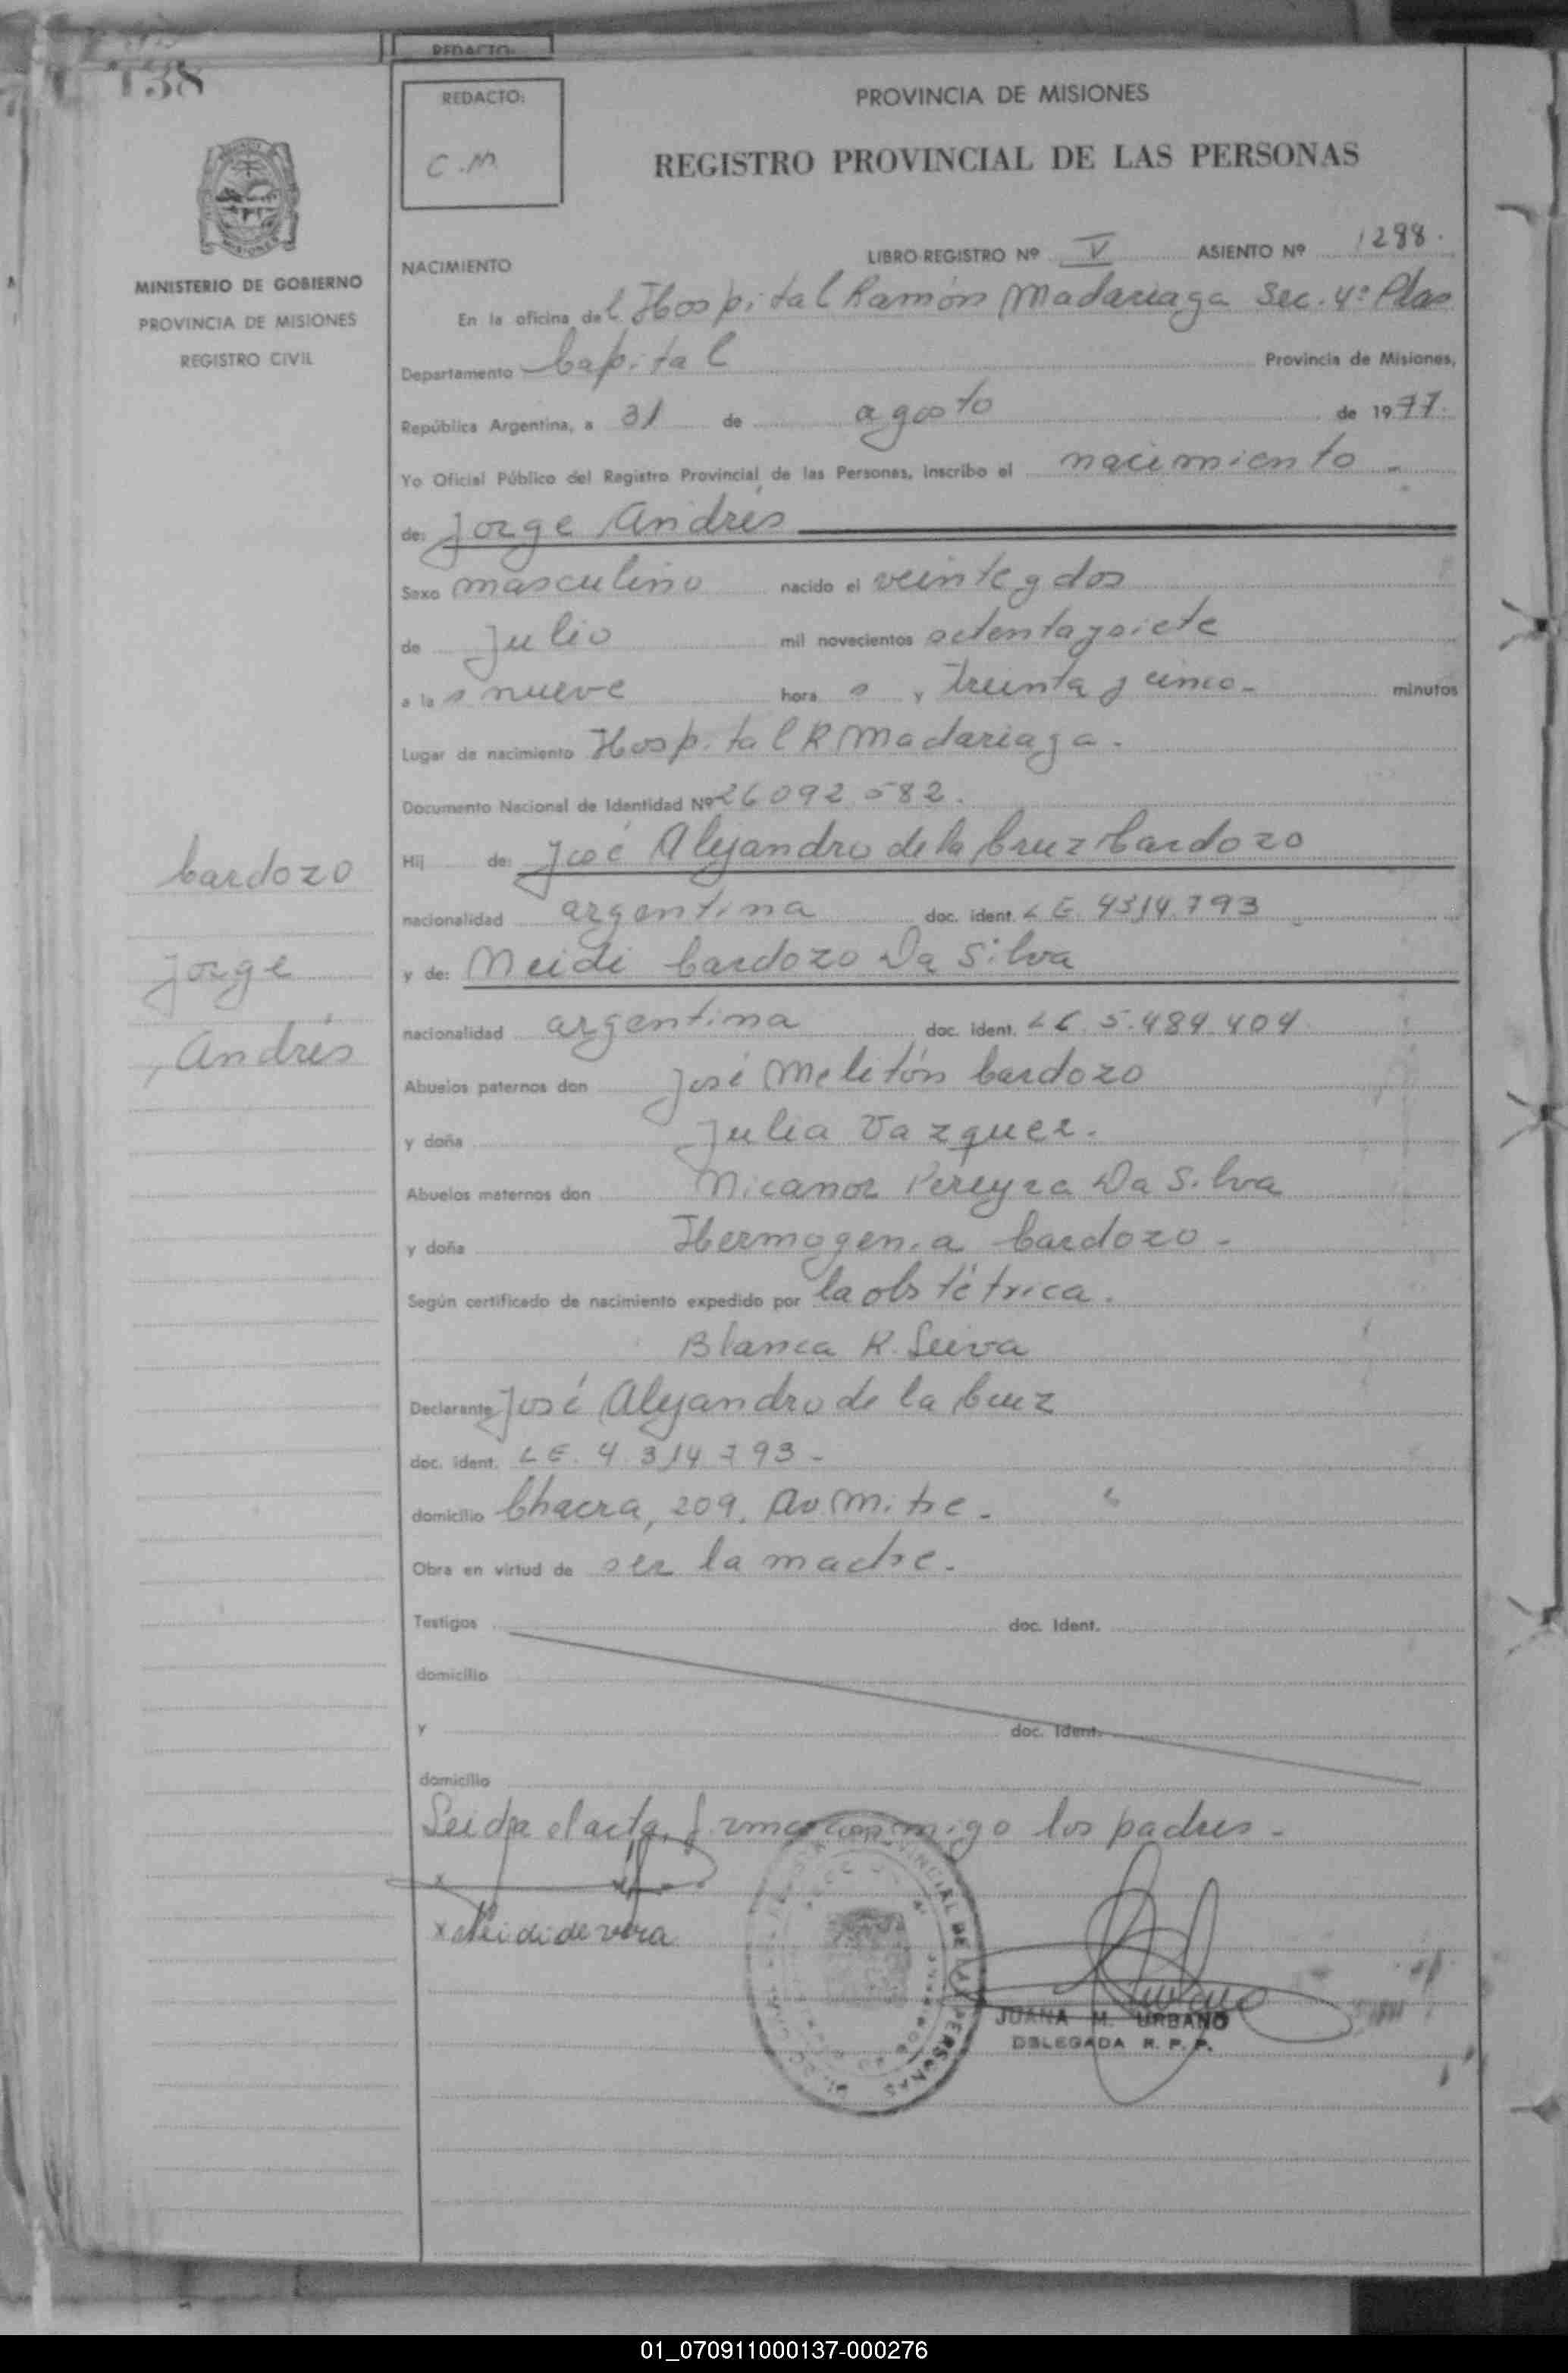 138
REDACTO:
REDACTO:
C.M.
PROVINCIA DE MISIONES
REGISTRO PROVINCIAL DE LAS PERSONAS
MINISTERIO DE GOBIERNO
PROVINCIA DE MISIONES
REGISTRO CIVIL
NACIMIENTO
LIBRO REGISTRO Nº V ASIENTO Nº 1288.
En la oficina del Hospital Ramón Madariaga Sec. 4º Pdas
Departamento Capital Provincia de Misiones,
República Argentina, a 31 de agosto de 1977.
Yo Oficial Público del Registro Provincial de las Personas, inscribo el nacimiento
de: Jorge Andrés
Sexo masculino nacido el veinte y dos
de Julio mil novecientos setenta y siete
a las nueve horas y treinta y cinco minutos
Lugar de nacimiento Hospital R Madariaga.
Documento Nacional de Identidad Nº 26092582.
Hij de: José Alejandro de la Cruz Cardozo
nacionalidad argentina doc. ident. L E. 4314.793
y de: Neidi Cardozo Da Silva
nacionalidad argentina doc. ident. LC 5.484.404
Abuelos paternos don José Melitón Cardozo
y doña Julia Vazquez.
Abuelos maternos don Nicanor Pereyra Da Silva
y doña Hermogenia Cardozo -
Según certificado de nacimiento expedido por la obstétrica.
Blanca R. Leiva
Declarante José Alejandro de la Cruz
doc. ident. L E. 4.314.793 -
domicilio Chacra, 209. Av Mitre -
Obra en virtud de ser la madre.
Testigos doc. Ident.
domicilio
y doc. Ident.
domicilio
Leida el acta, firman conmigo los padres -
x
x Neidi de vera
JUANA M. URBANO
DELEGADA R. P. P.
Cardozo
Jorge
Andrés
01_070911000137-000276